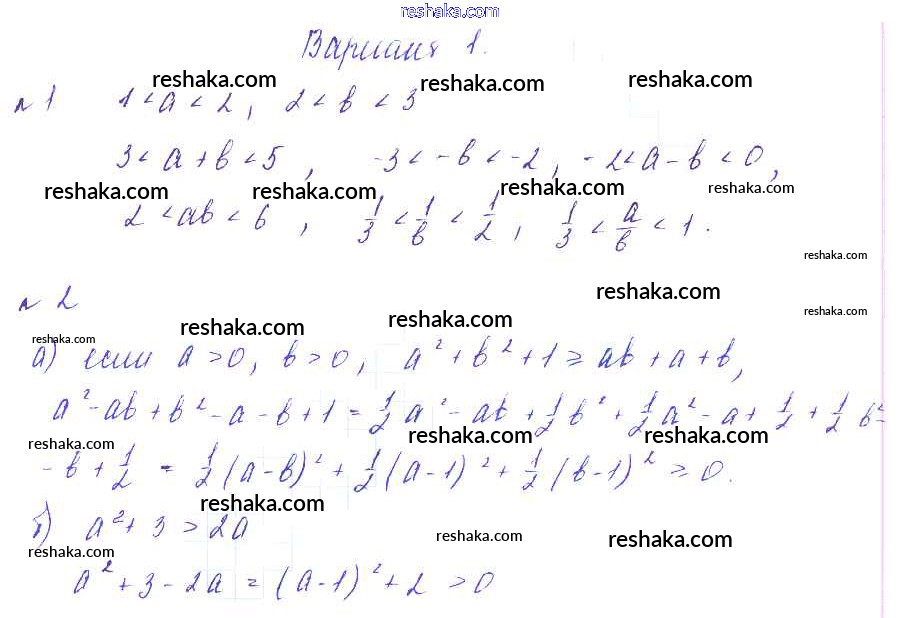 reshaka.com
Вариант 1.
reshaka.com reshaka.com reshaka.com
№ 1 1 < a < 2, 2 < b < 3
3 < a + b < 5, -3 < -b < -2, -2 < a - b < 0,
reshaka.com reshaka.com reshaka.com reshaka.com
2 < ab < 6, 1/3 < 1/b < 1/2, 1/3 < a/b < 1.
reshaka.com
№ 2 reshaka.com
reshaka.com
reshaka.com reshaka.com
reshaka.com
а) если a > 0, b > 0, a² + b² + 1 ≥ ab + a + b,
a² - ab + b² - a - b + 1 = 1/2 a² - ab + 1/2 b² + 1/2 a² - a + 1/2 + 1/2 b² -
reshaka.com reshaka.com reshaka.com
- b + 1/2 = 1/2 (a - b)² + 1/2 (a - 1)² + 1/2 (b - 1)² ≥ 0.
reshaka.com
б) a² + 3 > 2a
reshaka.com reshaka.com reshaka.com
a² + 3 - 2a = (a - 1)² + 2 > 0